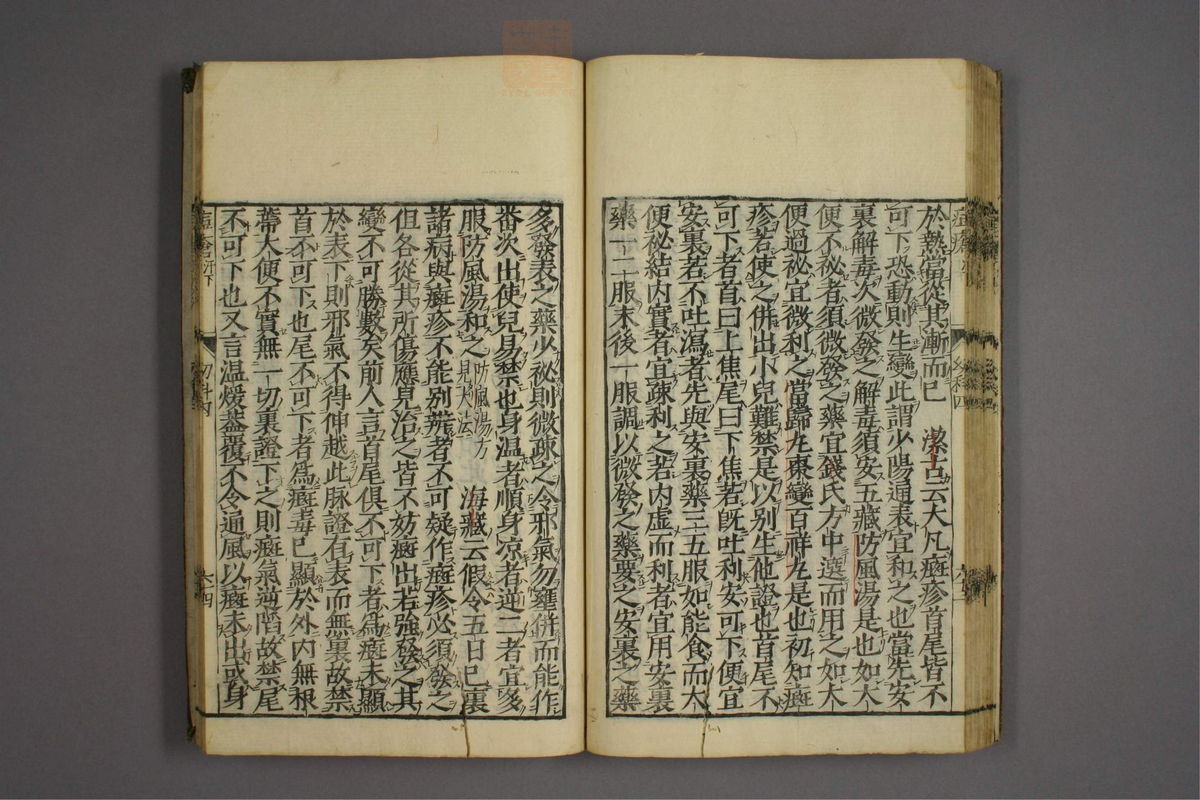 於熱當從其漸而已　潔古云大凡癍疹首尾皆不
可下恐動則生變此謂少陽通表宜和之也當先安
裏解毒次微發之解毒須安五藏防風湯是也如大
便不祕者須微發之藥宜錢氏方中選而用之如大
便過祕宜微利之當歸丸棗變百祥丸是也初知癍
疹若使之併出小兒難禁是以別生他證也首尾不
可下者首曰上焦尾曰下焦若既吐利安可下便宜
安裏若不吐瀉者先與安裏藥三五服如能食而大
便祕結內實者宜疎利之若內虛而利者宜用安裏
藥一二服末後一服調以微發之藥要之安裏之藥
多發表之藥少祕則微疎之令邪氣勿壅併而能作
番次出使兒易禁也身温者順身凉者逆二者宜多
服防風湯和之防風湯方見大法　海藏云假令五日已裏
諸病與癍疹不能別辨者不可疑作癍疹必須發之
但各從其所傷應見治之皆不妨癍出若強發之其
變不可勝數矣前人言首尾俱不可下者爲癍未顯
於表下則邪氣不得伸越此脉證有表而無裏故禁
首不可下也尾不可下者爲癍毒已顯於外內無根
蒂大便不實無一切裏證下之則癍氣逆陷故禁尾
不可下也又言温煖蓋覆不令通風以癍未出或身
幼科四